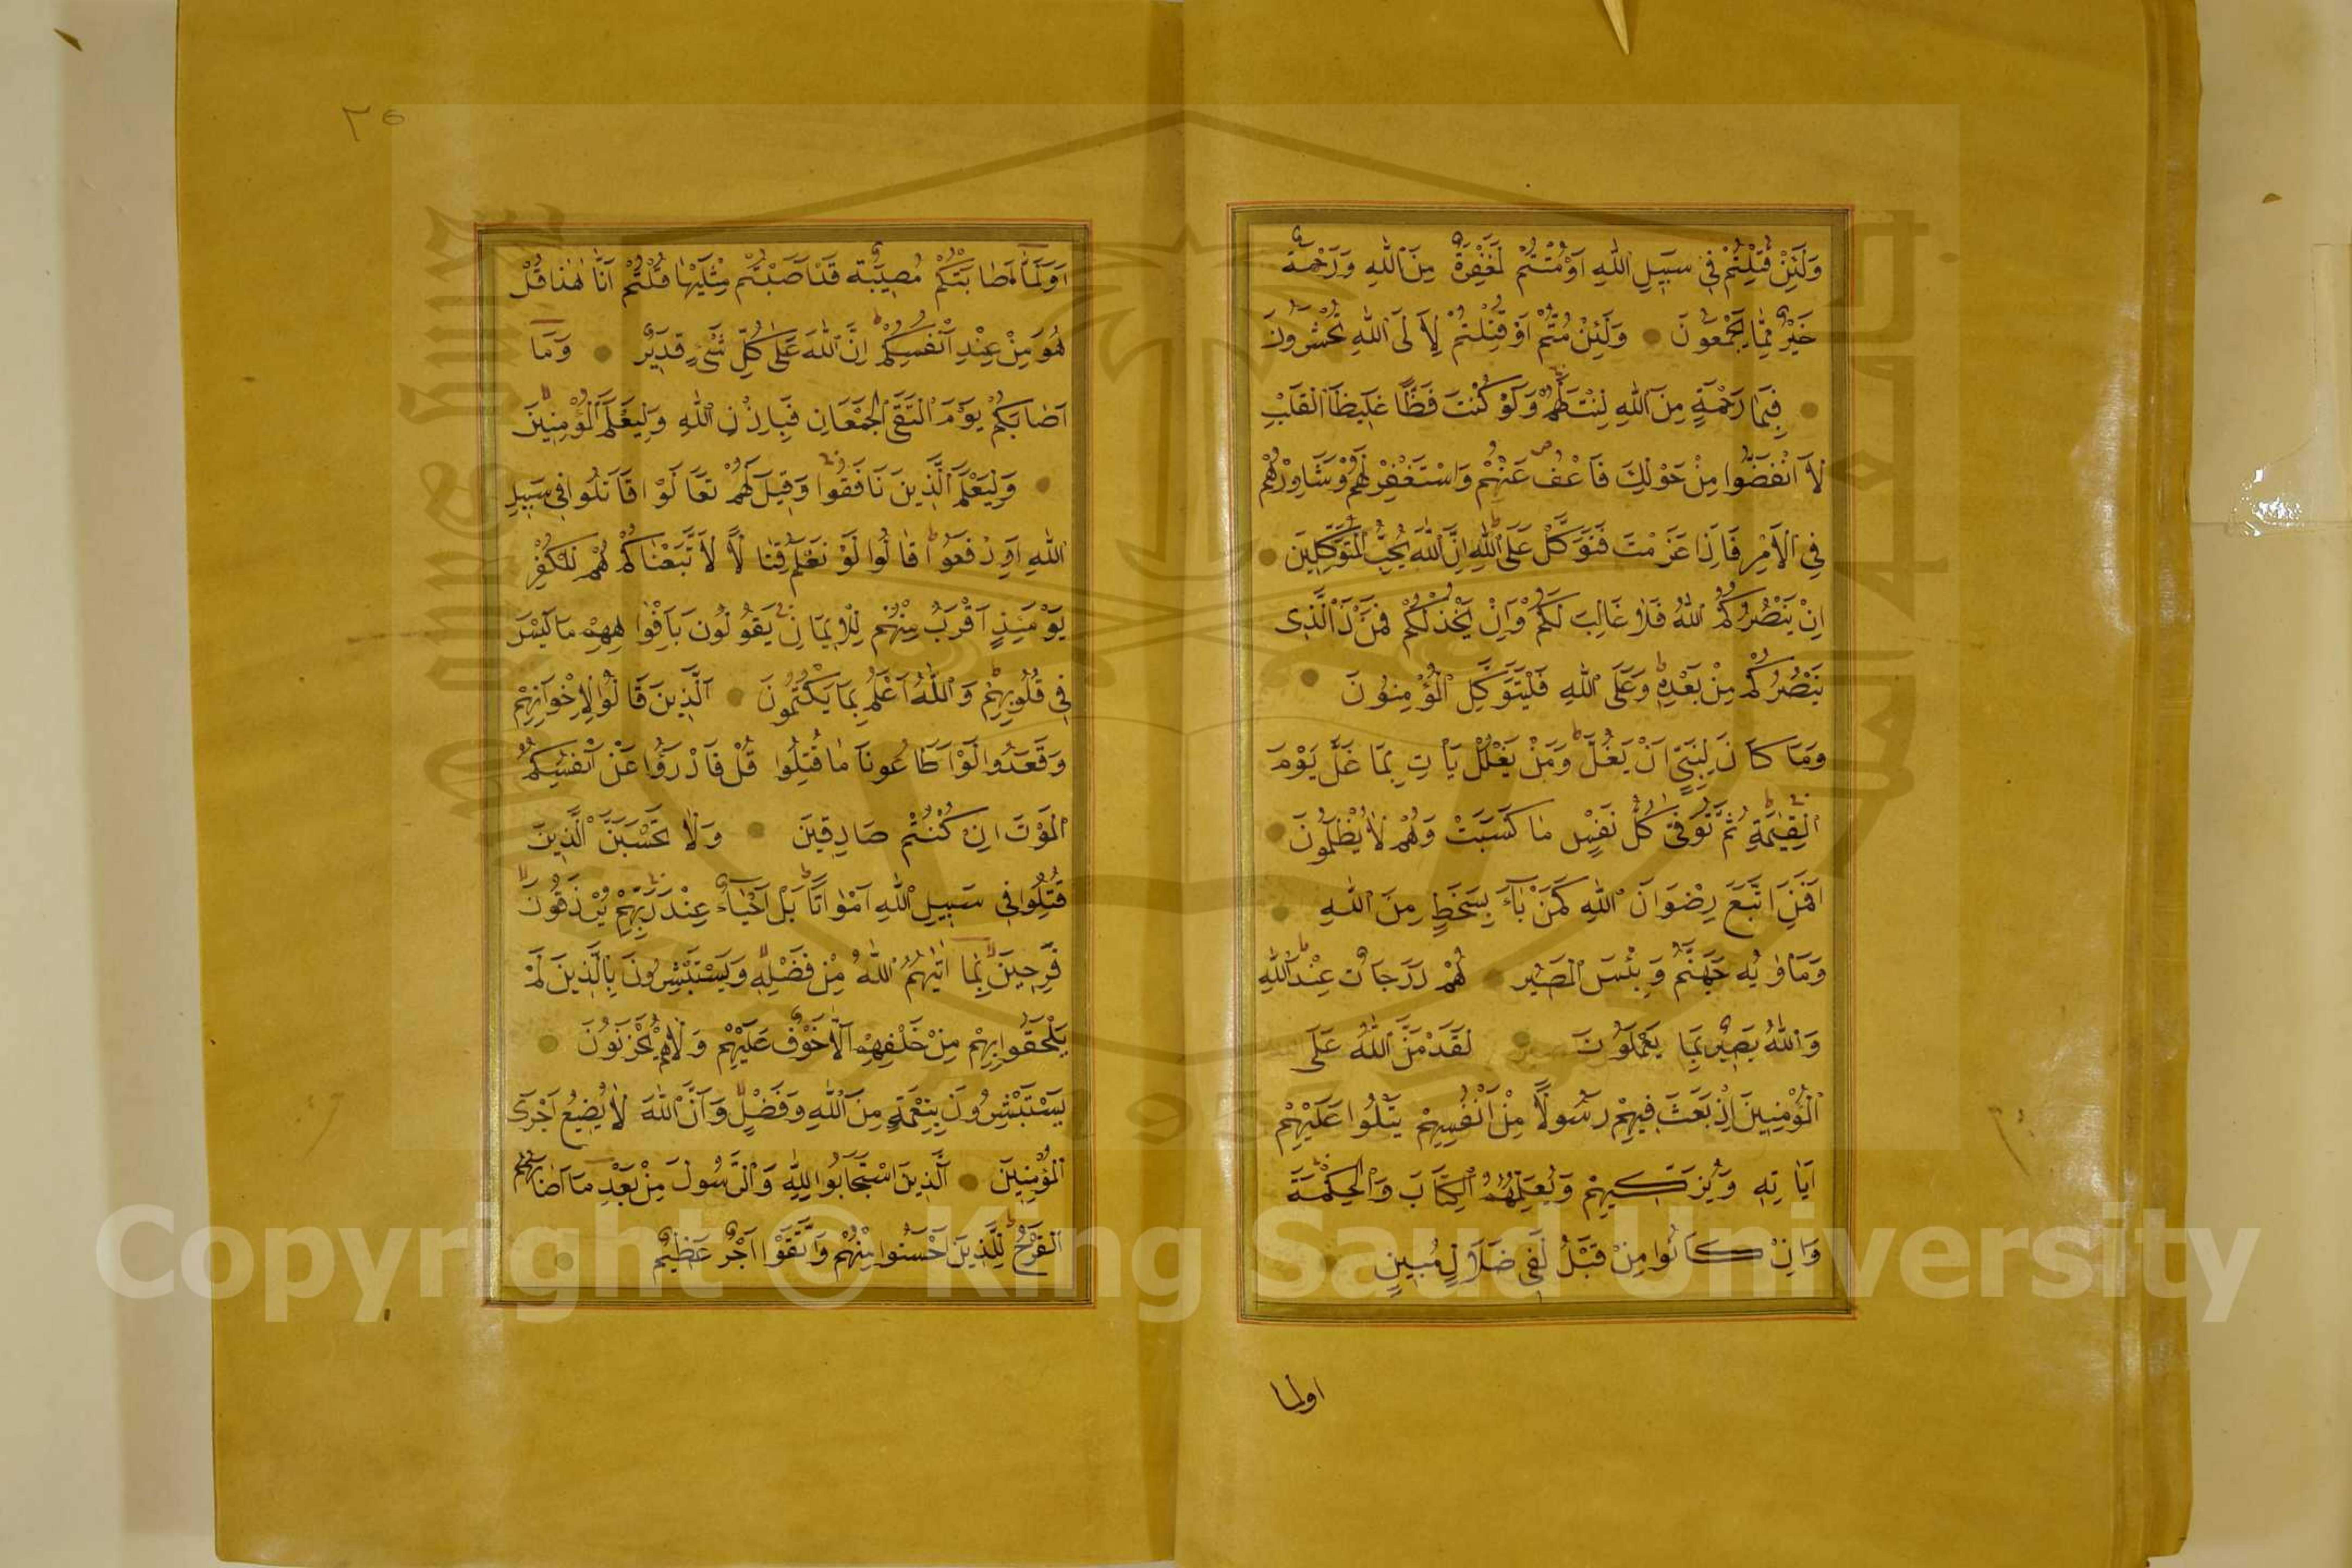 وَلَئِنْ قُتِلْتُمْ فِى سَبِيلِ اللّٰهِ اَوْ مُتُّمْ لَمَغْفِرَةٌ مِنَ اللّٰهِ وَرَحْمَةٌ
خَيْرٌ مِمَّا يَجْمَعُونَ وَلَئِنْ مُتُّمْ اَوْ قُتِلْتُمْ لَاِلَى اللّٰهِ تُحْشَرُونَ
فَبِمَا رَحْمَةٍ مِنَ اللّٰهِ لِنْتَ لَهُمْ وَلَوْ كُنْتَ فَظًّا غَلِيظَ الْقَلْبِ
لَا انْفَضُّوا مِنْ حَوْلِكَ فَاعْفُ عَنْهُمْ وَاسْتَغْفِرْ لَهُمْ وَشَاوِرْهُمْ
فِى الْاَمْرِ فَاِذَا عَزَمْتَ فَتَوَكَّلْ عَلَى اللّٰهِ اِنَّ اللّٰهَ يُحِبُّ الْمُتَوَكِّلِينَ
اِنْ يَنْصُرْكُمُ اللّٰهُ فَلَا غَالِبَ لَكُمْ وَاِنْ يَخْذُلْكُمْ فَمَنْ ذَا الَّذِى
يَنْصُرُكُمْ مِنْ بَعْدِهِ وَعَلَى اللّٰهِ فَلْيَتَوَكَّلِ الْمُؤْمِنُونَ
وَمَا كَانَ لِنَبِيٍّ اَنْ يَغُلَّ وَمَنْ يَغْلُلْ يَاْتِ بِمَا غَلَّ يَوْمَ
الْقِيٰمَةِ ثُمَّ تُوَفّٰى كُلُّ نَفْسٍ مَا كَسَبَتْ وَهُمْ لَا يُظْلَمُونَ
اَفَمَنِ اتَّبَعَ رِضْوَانَ اللّٰهِ كَمَنْ بَآءَ بِسَخَطٍ مِنَ اللّٰهِ
وَمَاْوٰيهُ جَهَنَّمُ وَبِئْسَ الْمَصِيرُ هُمْ دَرَجَاتٌ عِنْدَ اللّٰهِ
وَاللّٰهُ بَصِيرٌ بِمَا يَعْمَلُونَ لَقَدْ مَنَّ اللّٰهُ عَلَى
الْمُؤْمِنِينَ اِذْ بَعَثَ فِيهِمْ رَسُولًا مِنْ اَنْفُسِهِمْ يَتْلُوا عَلَيْهِمْ
اٰيَاتِهِ وَيُزَكِّيهِمْ وَيُعَلِّمُهُمُ الْكِتَابَ وَالْحِكْمَةَ
وَاِنْ كَانُوا مِنْ قَبْلُ لَفِى ضَلَالٍ مُبِينٍ
اولما
٢٥
اَوَلَمَّا اَصَابَتْكُمْ مُصِيبَةٌ قَدْ اَصَبْتُمْ مِثْلَيْهَا قُلْتُمْ اَنّٰى هٰذَا قُلْ
هُوَ مِنْ عِنْدِ اَنْفُسِكُمْ اِنَّ اللّٰهَ عَلٰى كُلِّ شَىْءٍ قَدِيرٌ وَمَا
اَصَابَكُمْ يَوْمَ الْتَقَى الْجَمْعَانِ فَبِاِذْنِ اللّٰهِ وَلِيَعْلَمَ الْمُؤْمِنِينَ
وَلِيَعْلَمَ الَّذِينَ نَافَقُوا وَقِيلَ لَهُمْ تَعَالَوْا قَاتِلُوا فِى سَبِيلِ
اللّٰهِ اَوِ ادْفَعُوا قَالُوا لَوْ نَعْلَمُ قِتَالًا لَاتَّبَعْنَاكُمْ هُمْ لِلْكُفْرِ
يَوْمَئِذٍ اَقْرَبُ مِنْهُمْ لِلْاِيمَانِ يَقُولُونَ بِاَفْوَاهِهِمْ مَا لَيْسَ
فِى قُلُوبِهِمْ وَاللّٰهُ اَعْلَمُ بِمَا يَكْتُمُونَ اَلَّذِينَ قَالُوا لِاِخْوَانِهِمْ
وَقَعَدُوا لَوْ اَطَاعُونَا مَا قُتِلُوا قُلْ فَادْرَؤُا عَنْ اَنْفُسِكُمُ
الْمَوْتَ اِنْ كُنْتُمْ صَادِقِينَ وَلَا تَحْسَبَنَّ الَّذِينَ
قُتِلُوا فِى سَبِيلِ اللّٰهِ اَمْوَاتًا بَلْ اَحْيَآءٌ عِنْدَ رَبِّهِمْ يُرْزَقُونَ
فَرِحِينَ بِمَا اٰتٰيهُمُ اللّٰهُ مِنْ فَضْلِهِ وَيَسْتَبْشِرُونَ بِالَّذِينَ لَمْ
يَلْحَقُوا بِهِمْ مِنْ خَلْفِهِمْ اَلَّا خَوْفٌ عَلَيْهِمْ وَلَا هُمْ يَحْزَنُونَ
يَسْتَبْشِرُونَ بِنِعْمَةٍ مِنَ اللّٰهِ وَفَضْلٍ وَاَنَّ اللّٰهَ لَا يُضِيعُ اَجْرَ
الْمُؤْمِنِينَ اَلَّذِينَ اسْتَجَابُوا لِلّٰهِ وَالرَّسُولِ مِنْ بَعْدِ مَا اَصَابَهُمُ
الْقَرْحُ لِلَّذِينَ اَحْسَنُوا مِنْهُمْ وَاتَّقَوْا اَجْرٌ عَظِيمٌ
Copyright © King Saud University